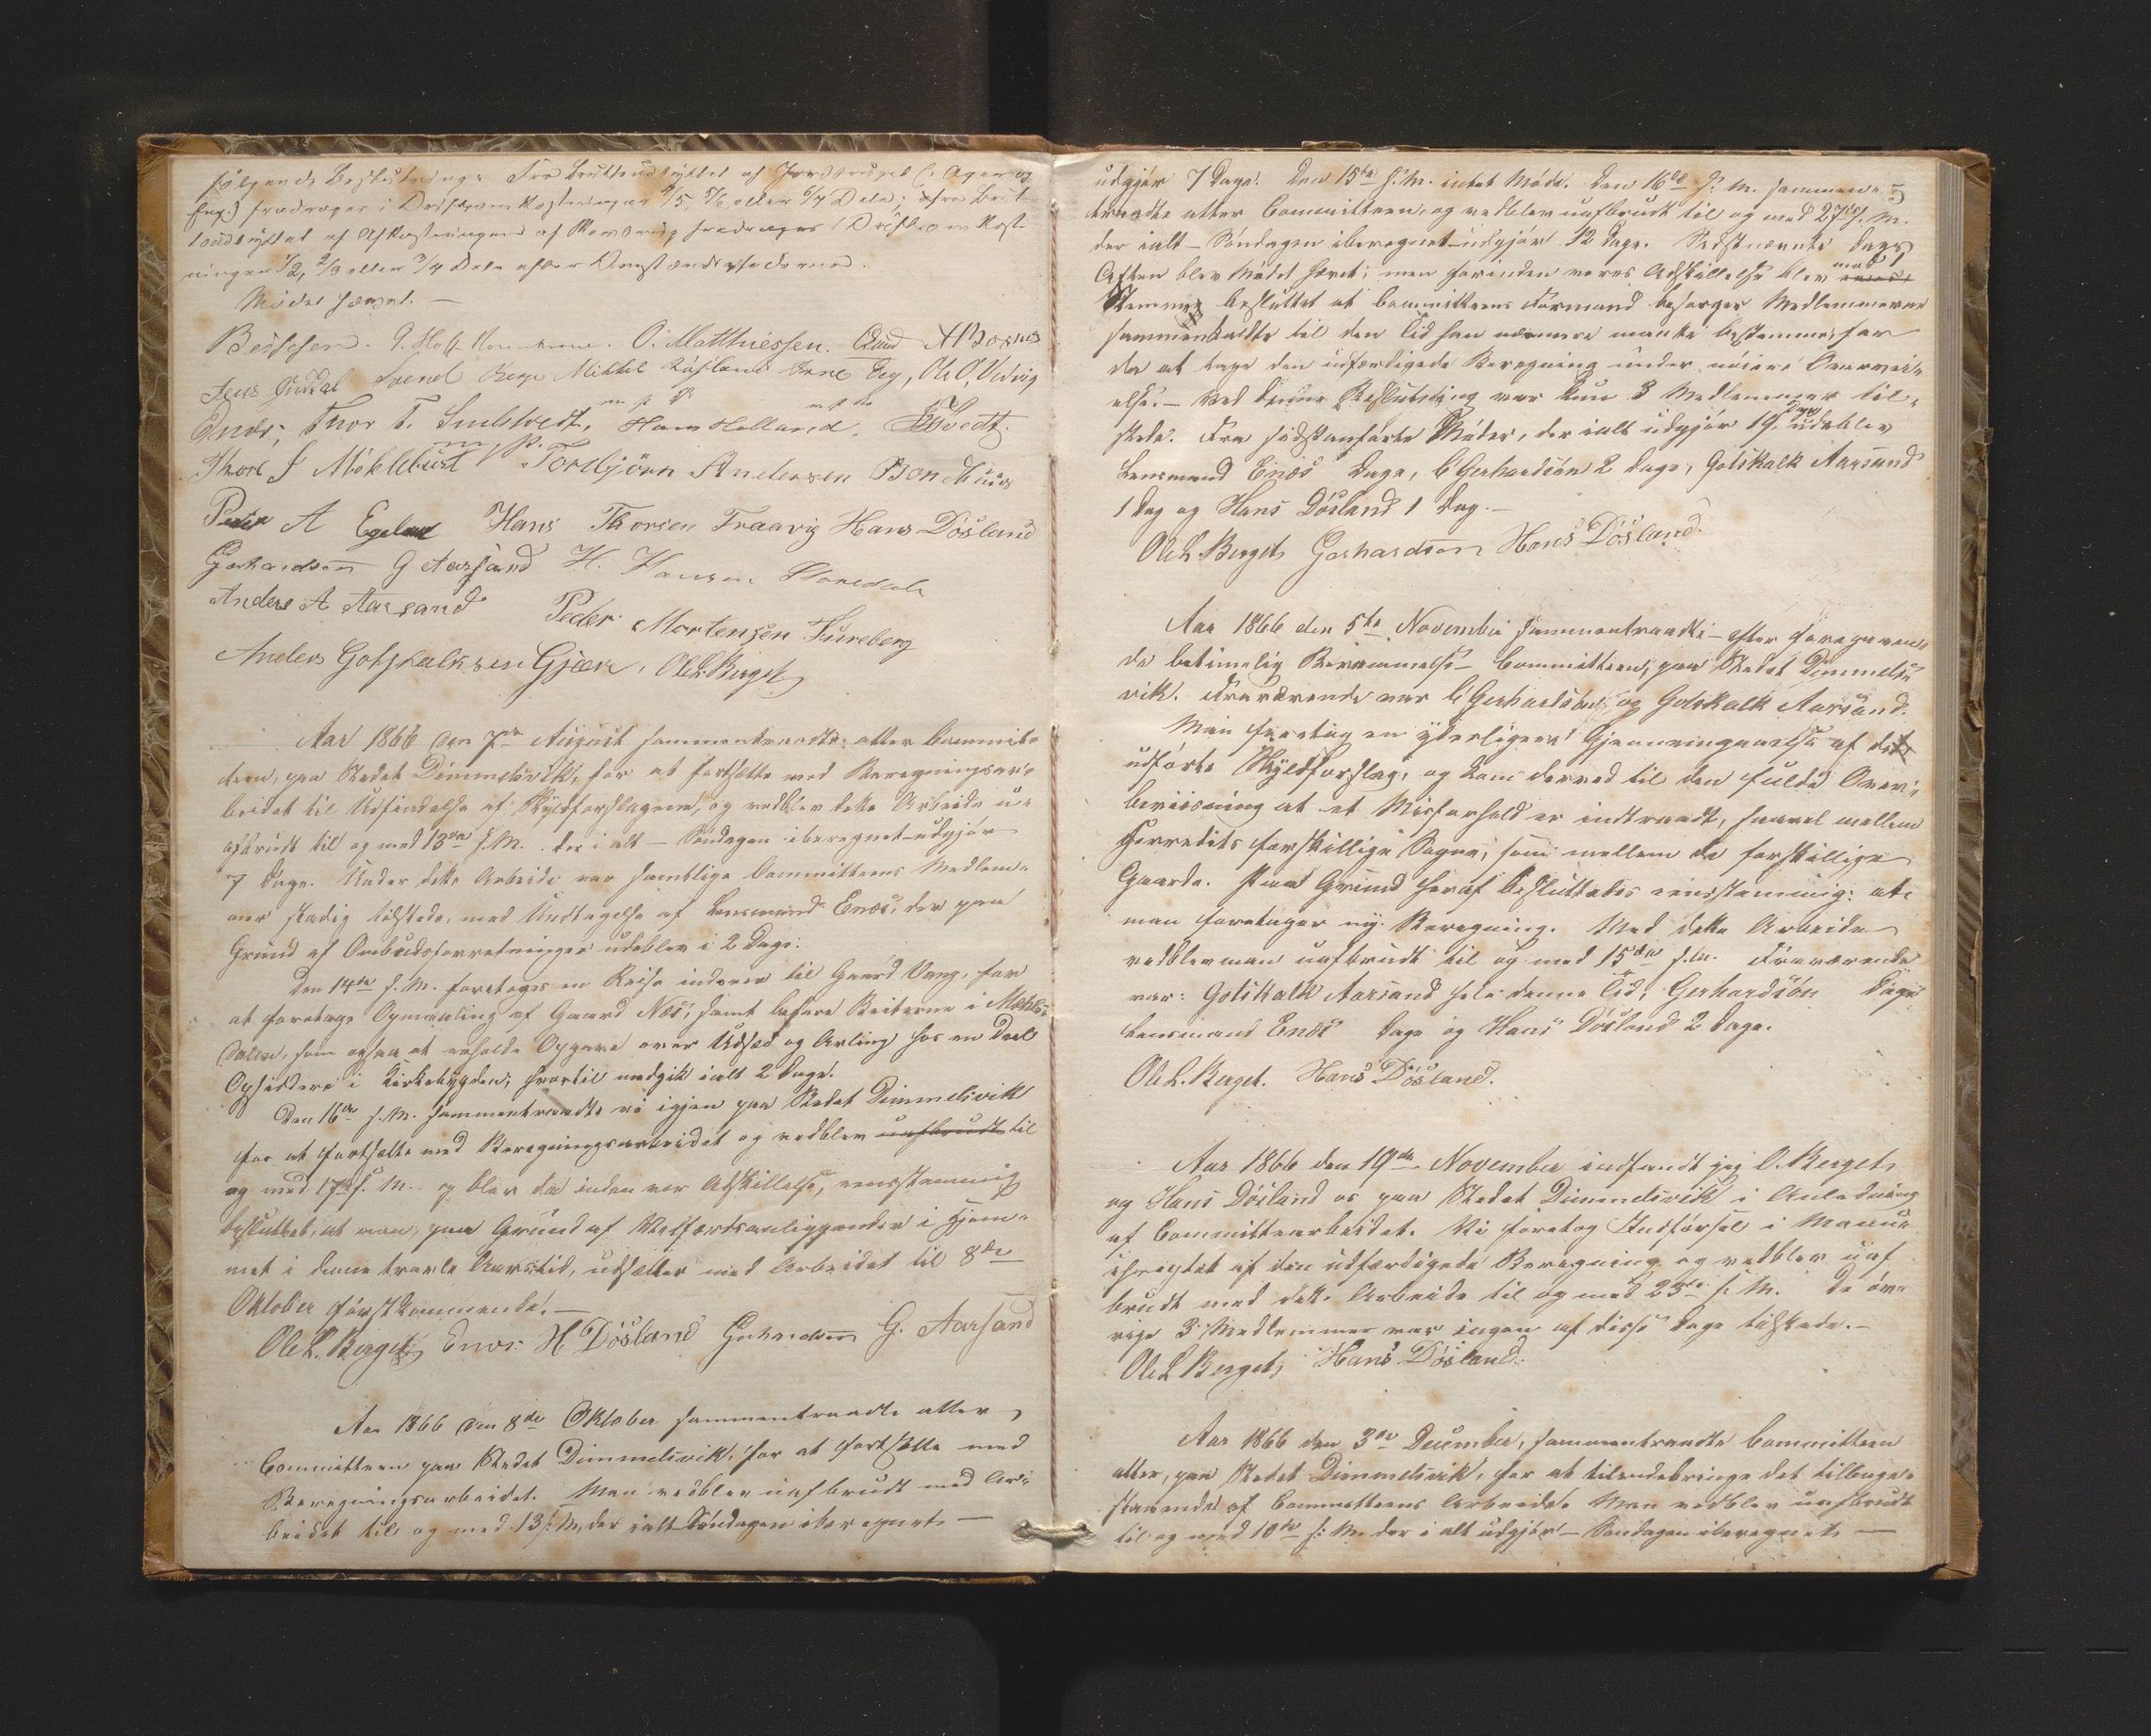 følgende Beslutninger. Fra Bruttoudbyttet af Jordbruget (: Ager og
Eng) fradrages i Driftsomkostninger 4/5, 5/6 eller 6/7 Dele; afra Brut-
toudbyttet af Afkastningen af Skovvæsen fradrages i Driftsomkost-
ningen 1/2, 2/3 eller 3/4 Dele efter Omstændighederne.
Mødet hævet. —
Beichsen. O. Matthiessen.
Jens Guddal Svend Mikkel Røsland Arne Eeg, Ole O. Undvig
Enæs, Thor T. Sundtvedt, Hans Helland. Tvedt.
Thore J Møklebust Torebjörn Andersen Bondhuus
Peder A Egeland Hans Thorsen Traavig Hans Døsland
Gerhardsen G Aarsand H. Hansen
Anders A Aarsand Peder Mortensen Fureberg
Anders Gotskalksen Gjære, Ole L. Berget,
Aar 1866 den 7de August sammentraadte atter Commit-
teen, paa Stedet Dimmelsvik, for at fortsætte med Beregningsar-
beidet til Udfindelse af Skyldforslagene, og vedblev dette Arbeide u-
afbrudt til og med 13de s. M. der i alt – Søndagen iberegnet – udgjør
7 Dage. Under dette Arbeide var samtlige Committeens Medlem-
mer stadig tilstede, med Undtagelse af Lensmand Enæs, der paa
Grund af Ombudsforretninger udeblev i 2 Dage.
Den 14de s. M. foretoges en Reise indover til Gaard Vang, for
at foretage Opmaaling af Gaard Næs, samt befare Beiterne i Møkle-
dalen, som ogsaa at erholde Opgave over Udsæd og Avling hos en Deel
Opsiddere i Kirkebygden, hvortil medgik i alt 2 Dage.
Den 16de s. M. sammentraadte vi igjen paa Stedet Dimmelsvik
for at fortsætte med Beregningsarbeidet og vedblev uafbrudt til
og med 17de s. M. og blev da inden vor Adskillelse, eensstemmig
besluttet, at man, paa Grund af Velfærdsanliggender i Hjem-
met i denne travle Aarstid, udsætter med Arbeidet til 8de
Oktober førstkommende. —
Ole L. Berget, Enæs. H Døsland Gerhardsen G. Aarsand
Aar 1866 den 8de Oktober sammentraadte atter
Committeen paa Stedet Dimmelsvik, for at fortsætte med
Beregningsarbeidet. Man vedblev uafbrudt med Ar-
beidet til og med 13 s. M, der i alt – Søndagen iberegnet —
5
udgjør 7 Dage. Den 15de s. M. intet Møde. Den 16de s. M. sammen-
traadte atter Committeen, og vedblev uafbrudt til og med 27de s. M.
der i alt – Søndagen iberegnet – udgjør 12 Dage. Sidstnævnte Dags
Aften blev Mødet hævet; men forinden vores Adskillelse blev mod 1
Stemme besluttet at Committeens Formand besørger Medlemmerne
sammenkaldte til den Tid han nærmere maatte bestemme, for
da at tage den udfærdigede Beregning under nøiere Overvei-
else. – Ved denne Beslutning var kun 3 Medlemmer til-
stede. Fra sidstanførte Møder, der i alt udgjør 19 Dage udeblev
Lensmand Enæs Dage, C Gerhardsøn 2 Dage, Gotskalk Aarsand
1 Dag og Hans Døsland 1 Dag. –
Ole L. Berget, Gerhardsen Hans Døsland.
Aar 1866 den 5te November sammentraadte – efter foregaaen-
de betimelig Berammelse – Committeen, paa Stedet Dimmels-
vik. Fraværende var C Gerhardsøn, og Gotskalk Aarsand.
Man foretog en yderligere Gjennemgaaelse af det
udførte Skyldforslag, og kom derved til den fulde Over-
beviisning at et Misforhold er indtraadt, saavel mellem
Herredets forskillige Sogne, som mellem de forskillige
Gaarde. Paa Grund heraf besluttedes eensstemmig: at
man foretager ny Beregning. Med dette Arbeide
vedblev man uafbrudt til og med 15de s. M. Fraværende
var: Gotskalk Aarsand hele denne Tid, Gerhardsøn Dage
Lensmand Enæs Dage og Hans Døsland 2 Dage.
Ole L. Berget. Hans Døsland.
Aar 1866 den 19de November indfandt jeg O. Berget,
og Hans Døsland os paa Stedet Dimmelsvik i Anledning
af Committearbeidet. Vi foretog Indførsel i Manu-
skriptet af den udfærdigede Beregning og vedblev uaf-
brudt med dette Arbeide til og med 23de s. M. De øv-
rige 3 Medlemmer var ingen af disse Dage tilstede. –
Ole L Berget, Hans Døsland.
Aar 1866 den 3de December, sammentraadte Committeen
atter, paa Stedet Dimmelsvik, for at tilendebringe det tilbage-
staaende af Committeens Arbeide. Man vedblev uafbrudt
til og med 10de s. M. der i alt udgjør – Søndagen iberegnet —